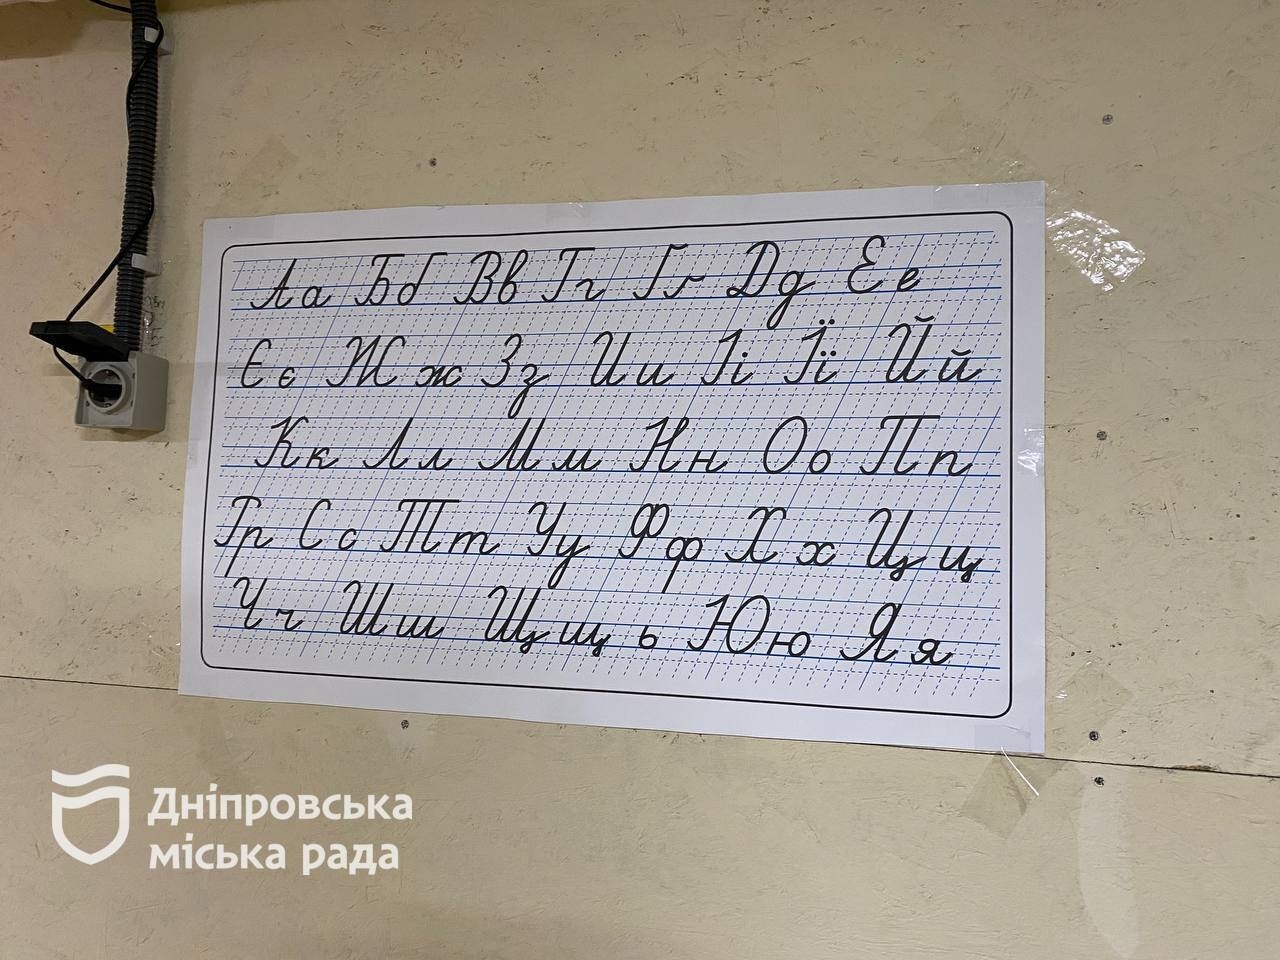 Аа Бб Вв Гг Ґґ Дд Ее
Єє Жж Зз Ии Іі Її Йй
Кк Лл Мм Нн Оо Пп
Рр Сс Тт Уу Фф Хх Цц
Чч Шш Щщ ь Юю Яя
Дніпровська
міська рада